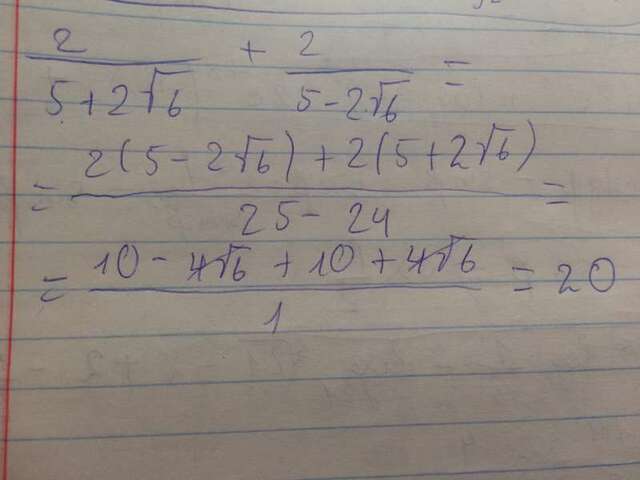 2/(5+2√6) + 2/(5-2√6) =
= (2(5-2√6)+2(5+2√6))/(25-24) =
= (10-4√6+10+4√6)/1 = 20